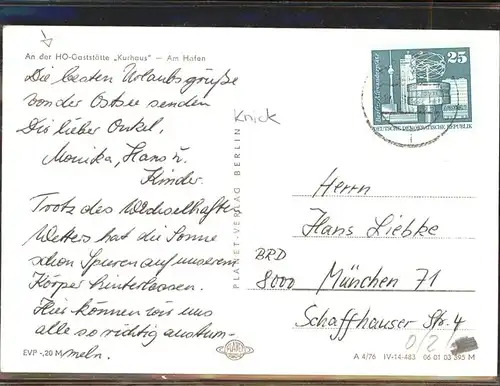 An der HO-Gaststätte „Kurhaus" — Am Hafen
Die besten Urlaubsgrüße
von der Ostsee senden
Dir lieber Onkel,
Monika, Hans u.
Kinder.
Trotz des Wechselhaften
Wetters hat die Sonne
schon Spuren auf unserem
Körper hinterlassen.
Hier können wir uns
alle so richtig austum-
meln.
EVP -,20 M
Knick
PLANET-VERLAG BERLIN
PLANET
25
DEUTSCHE DEMOKRATISCHE REPUBLIK
Herrn
Hans Liebke
BRD
8000 München 71
Schaffhauser Str. 4
A 4/76 IV-14-483 06 01 03 395 M